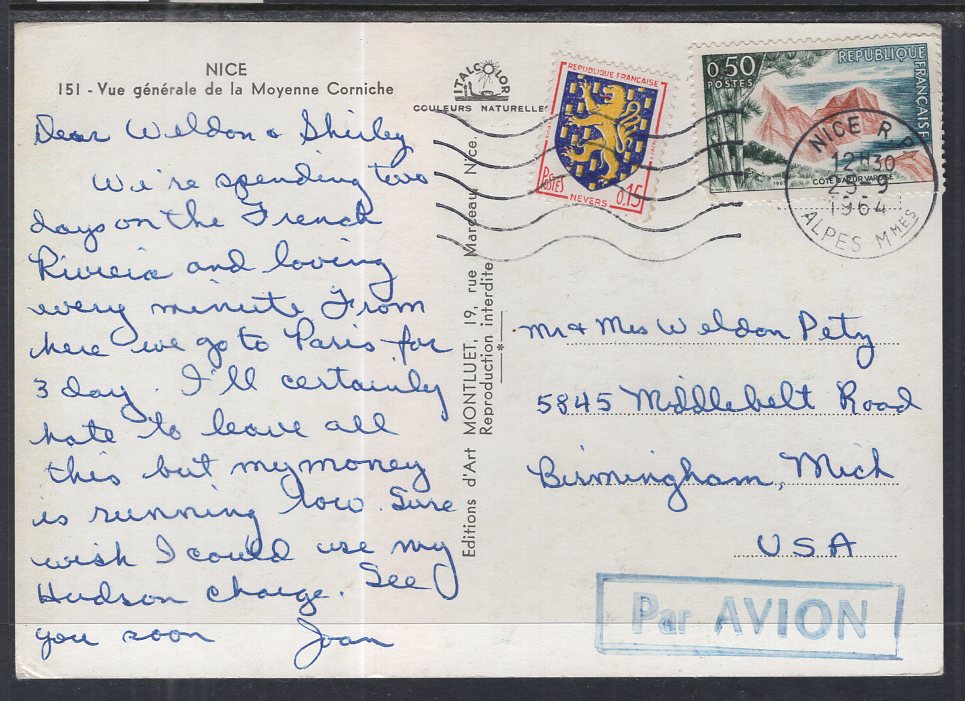 NICE
151 - Vue générale de la Moyenne Corniche
Dear Weldon & Shirley
We're spending two
days on the French
Riviera and loving
every minute From
here we go to Paris for
3 day. I'll certainly
hate to leave all
this but my money
is running low. Sure
wish I could use my
Hudson charge. See
you soon Joan
ITALCOLOR
COULEURS NATURELLES
Editions d'Art MONTLUET, 19, rue Marceau Nice.
Reproduction interdite
*
REPUBLIQUE FRANÇAISE
POSTES 0,15
NEVERS
0,50
POSTES
REPUBLIQUE FRANÇAISE
COTE D'AZUR VAROISE
NICE R. P.
12H30
23-9
1964
ALPES MMES
Mr & Mrs Weldon Pety
5845 Middlebelt Road
Birmingham, Mich
USA
Par AVION